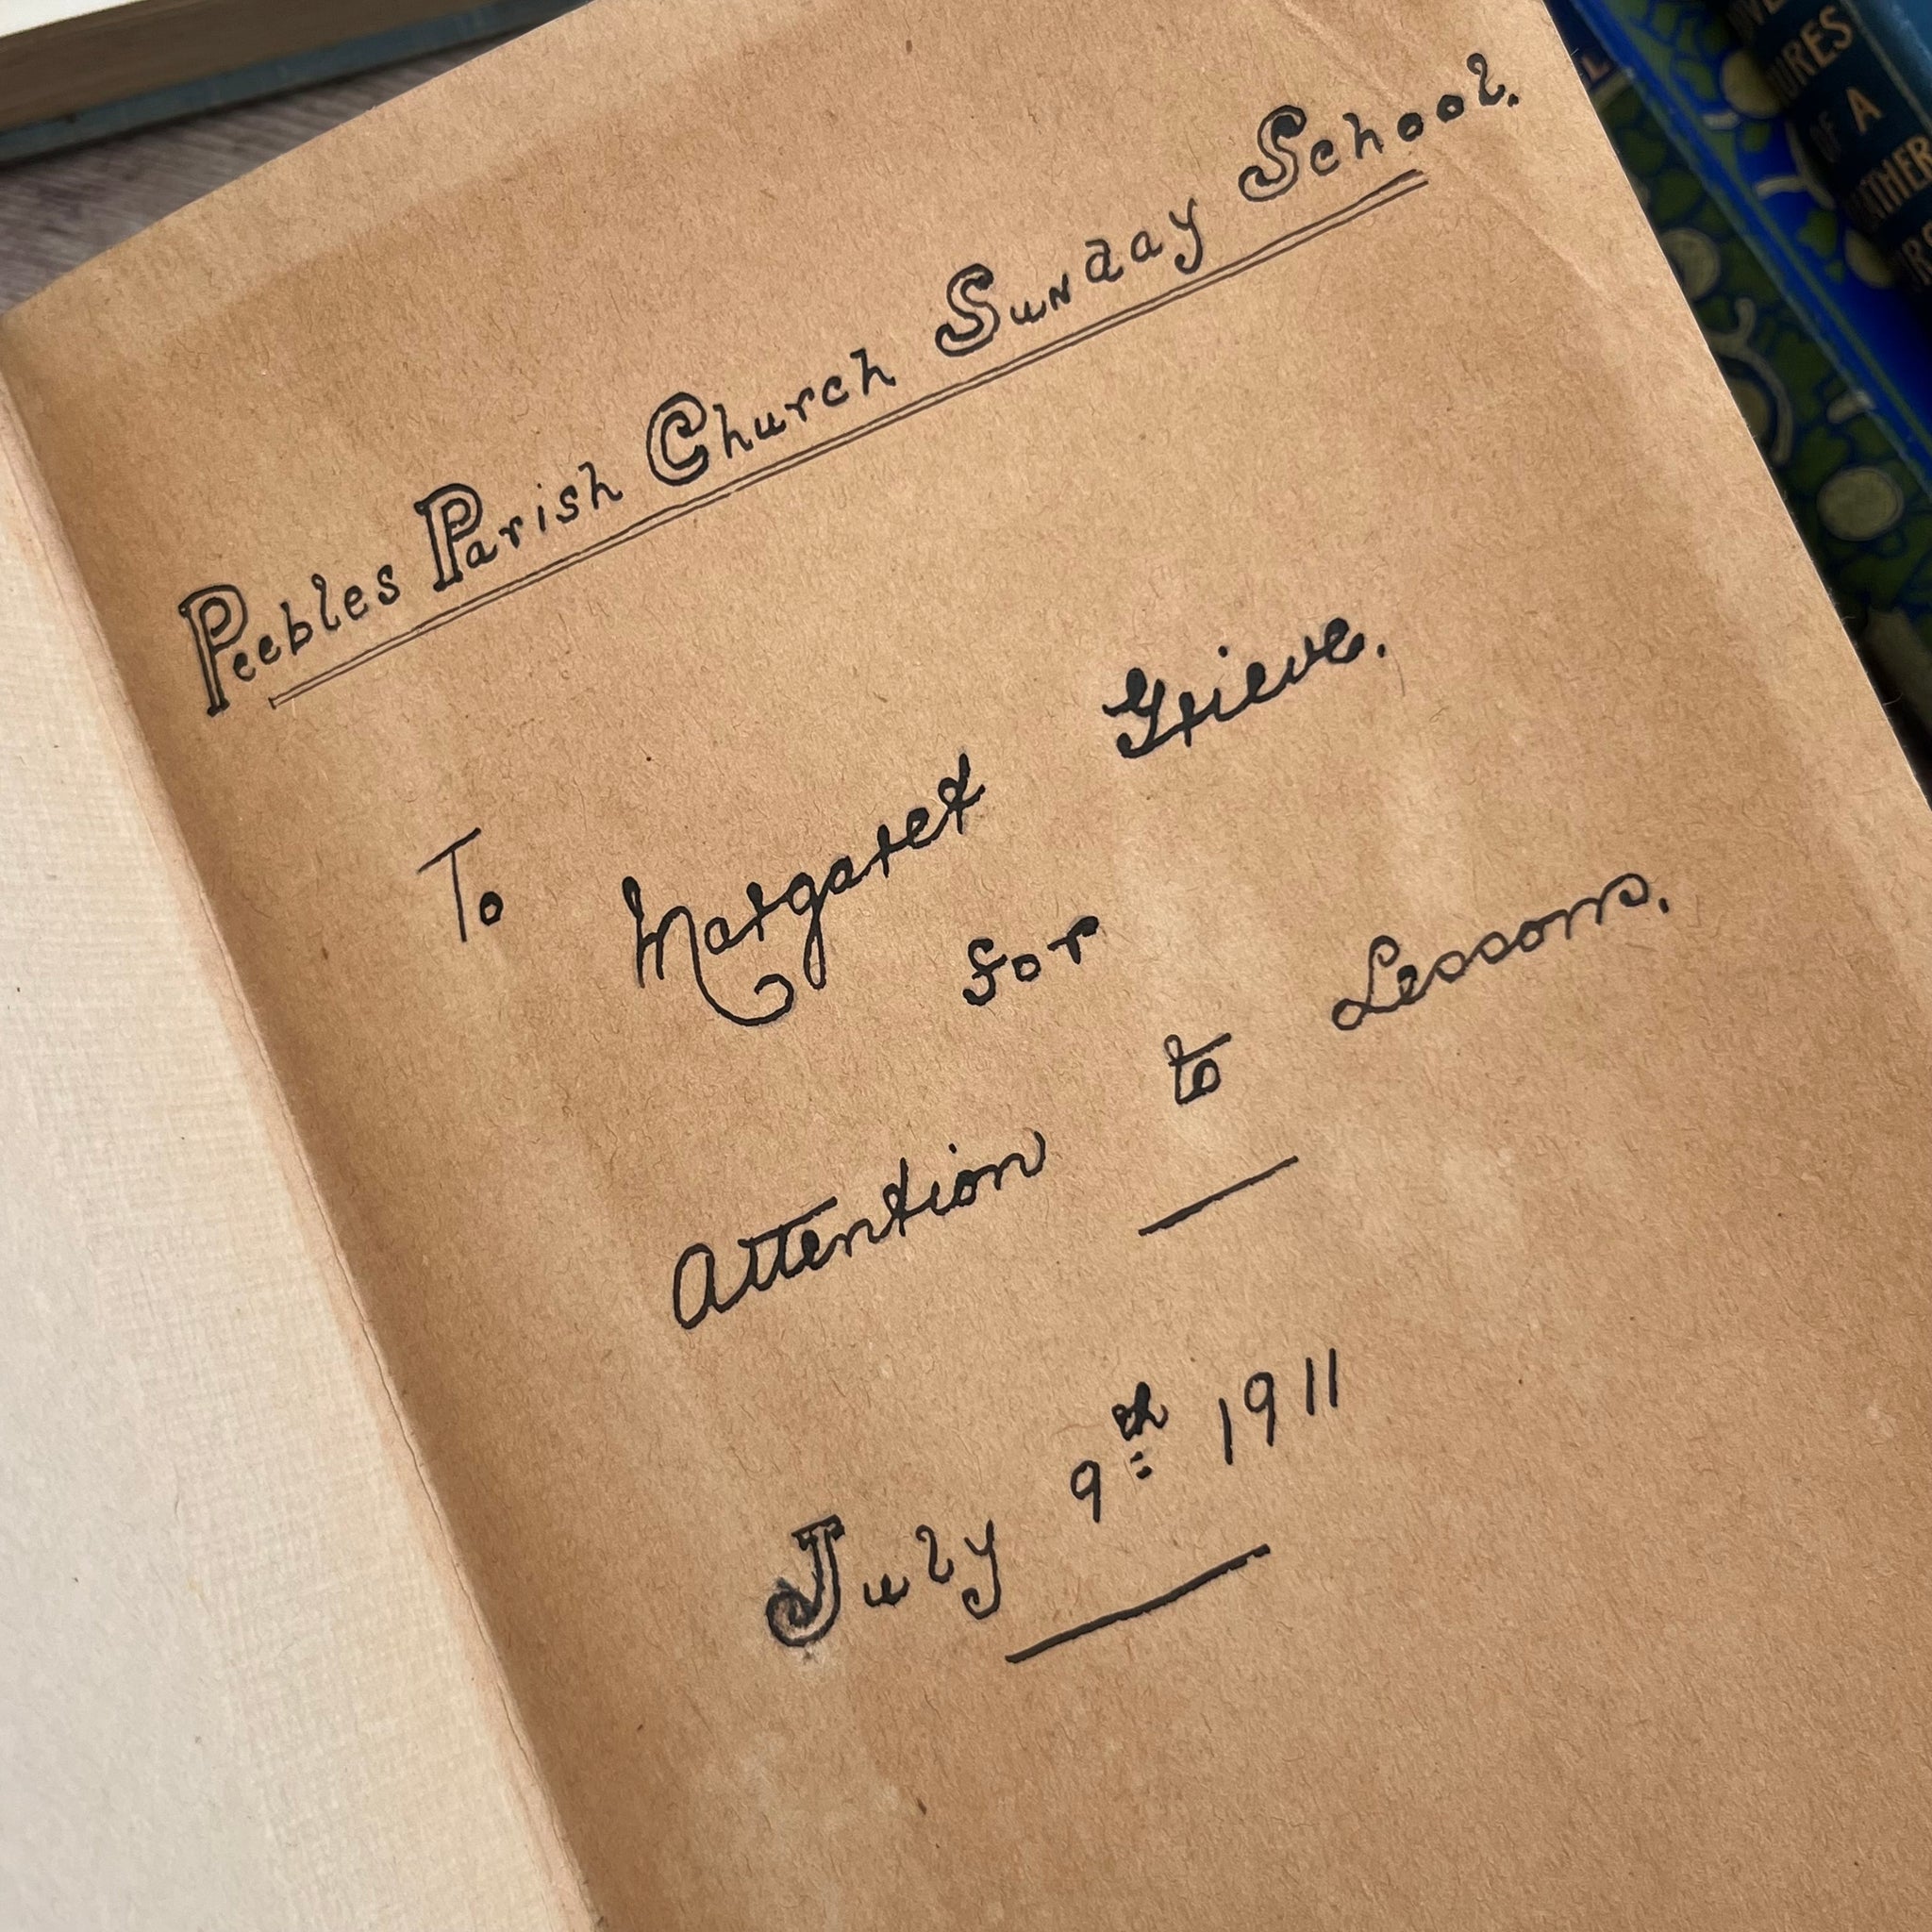 Peebles Parish Church Sunday School.
To Margaret Grieve.
for
Attention to Lessons.
July 9th 1911
URES
OF A